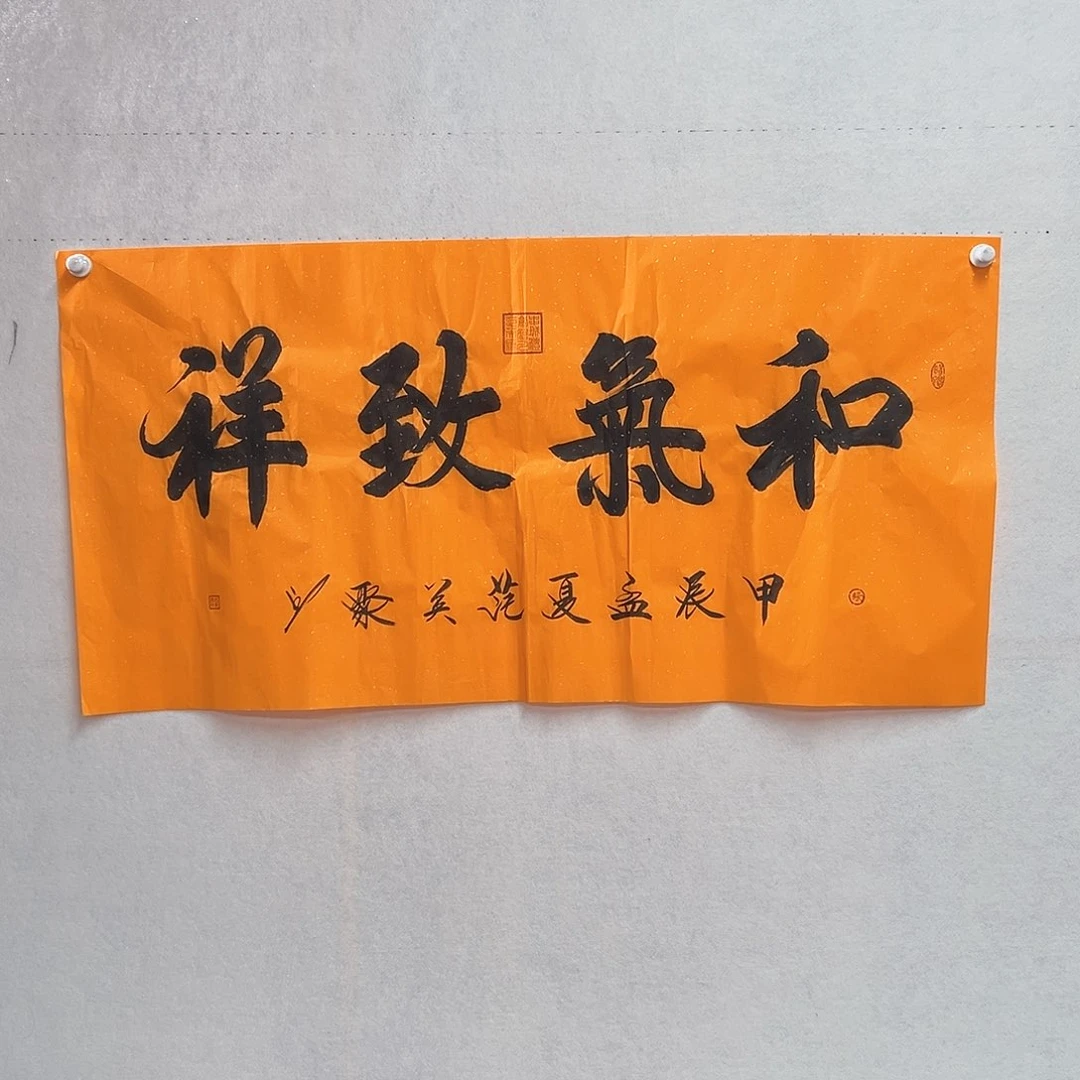 和氣致祥
甲辰孟夏范英聚书